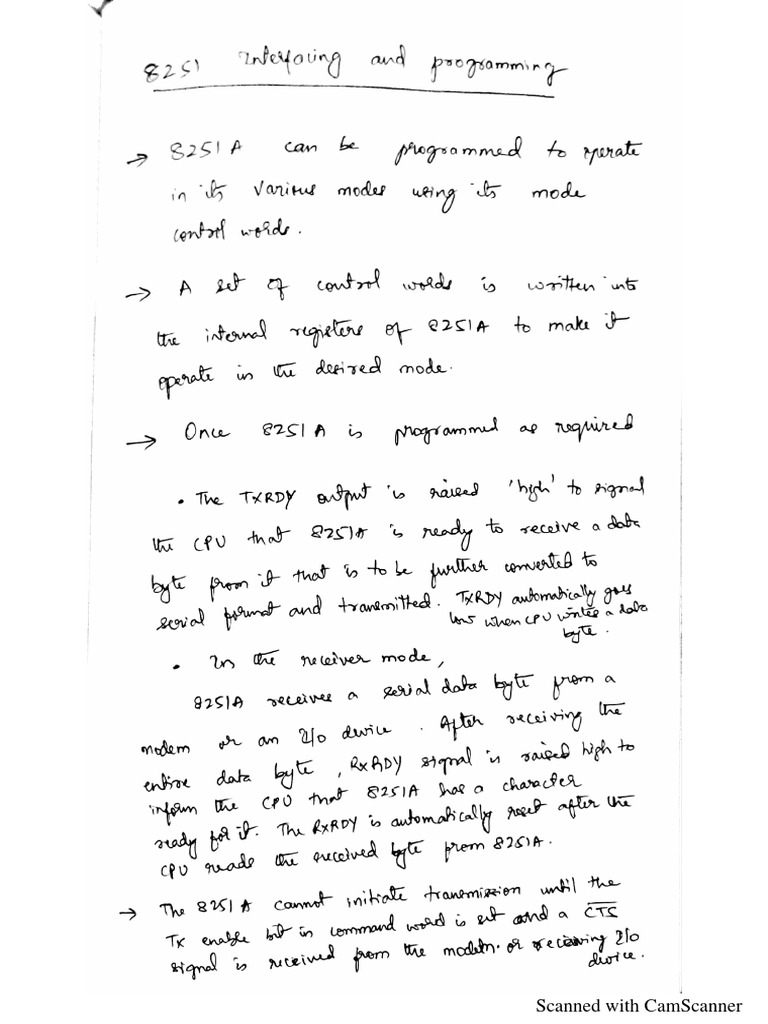 8251 Interfacing and programming
→ 8251A can be programmed to operate
in its various modes using its mode
control words.
→ A set of control words is written into
the internal registers of 8251A to make it
operate in the desired mode.
→ Once 8251A is programmed as required
• The TXRDY output is raised 'high' to signal
the CPU that 8251A is ready to receive a data
byte from it that is to be further converted to
serial format and transmitted. TXRDY automatically goes
low when CPU writes a data
byte.
• In the receiver mode,
8251A receives a serial data byte from a
modem or an I/O device. After receiving the
entire data byte, RxRDY signal is raised high to
inform the CPU that 8251A has a character
ready for it. The RxRDY is automatically reset after the
CPU reads the received byte from 8251A.
→ The 8251A cannot initiate transmission until the
TX enable bit in command word is set and a C̅T̅S̅
signal is received from the modem or receiving I/O
device.
Scanned with CamScanner